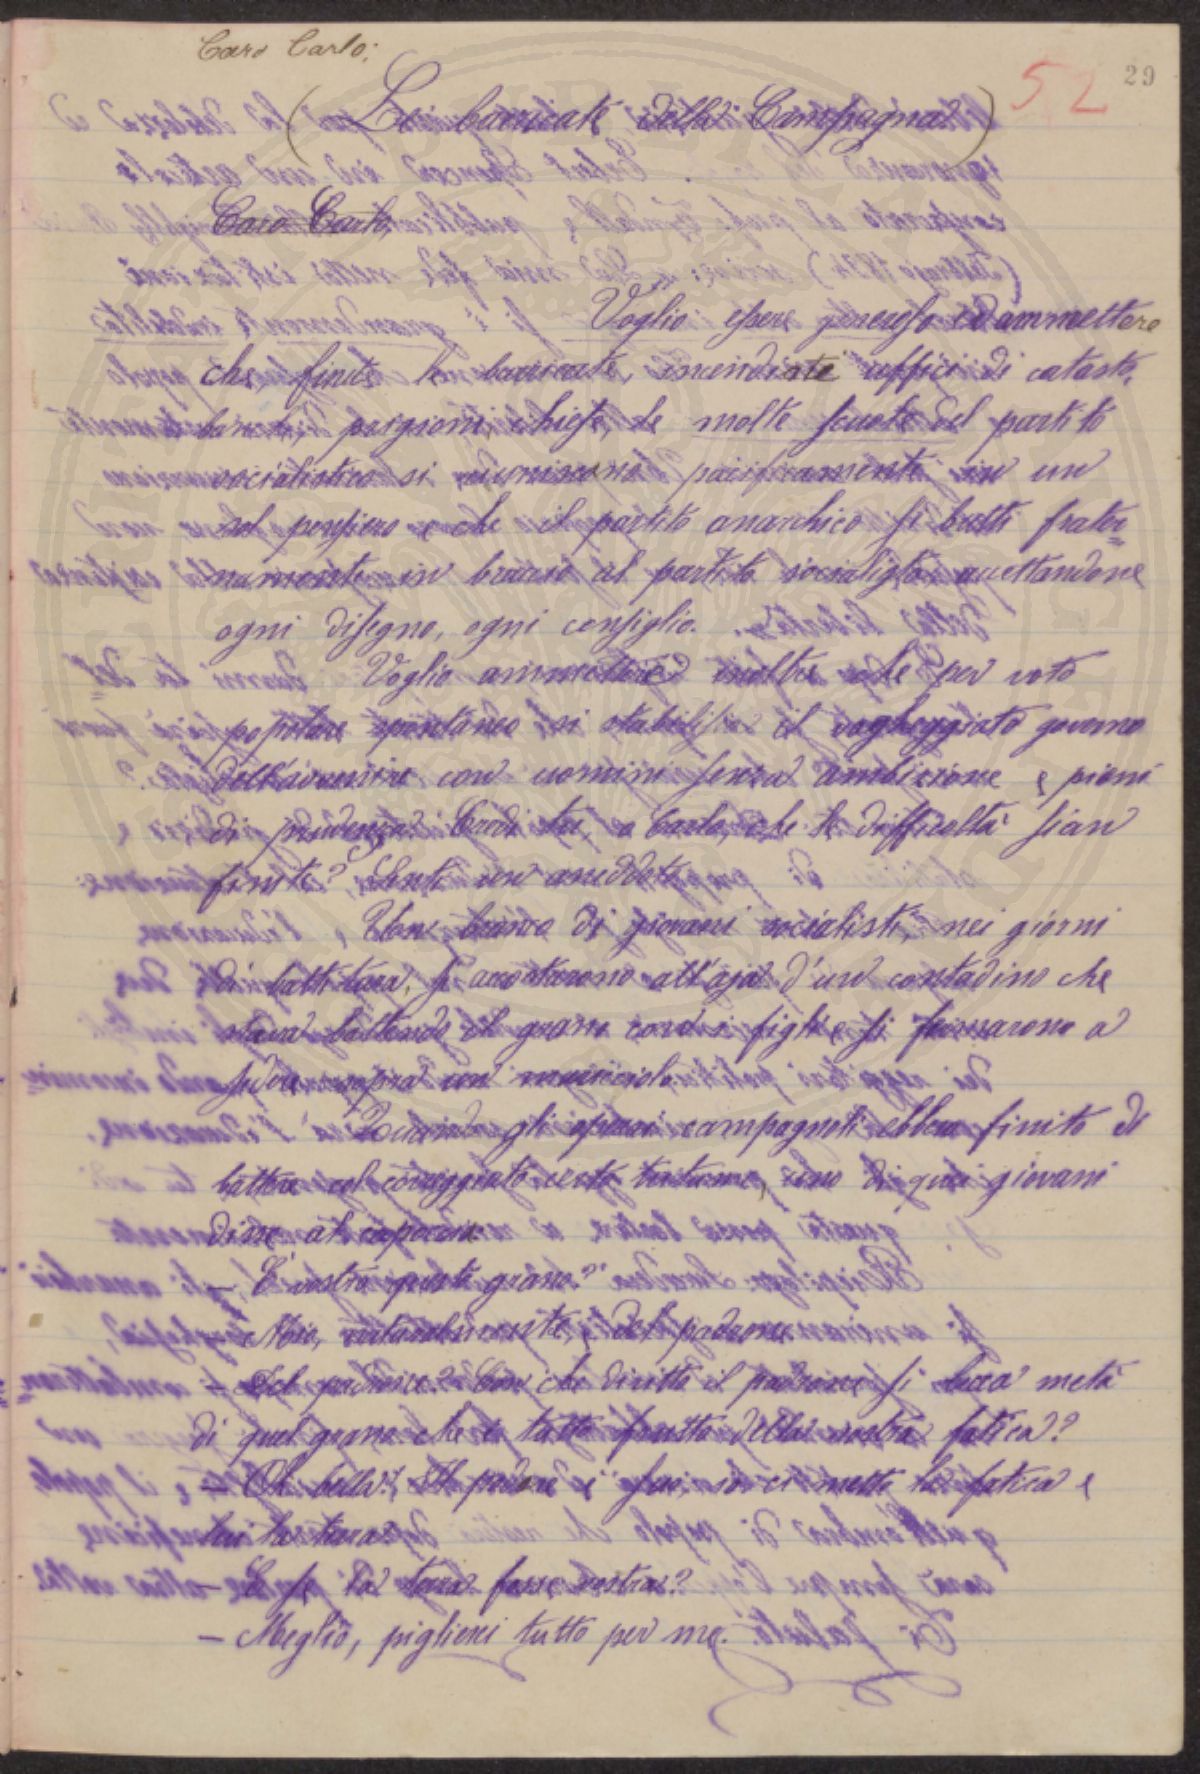 Caro Carlo:
52
29
(Le barricate della Campagna)
Caro Carlo,
Voglio essere generoso ed ammettere
che, finite le barricate, incendiate uffici di catasto,
prigioni, chiese, le molte scuole del partito
socialistico si riuniscano pacificamente in un
sol pensiero e che il partito anarchico si butti frater=
namente in braccio al partito socialista accettandone
ogni disegno, ogni consiglio.
Voglio ammettere inoltre che per voto
popolare spontaneo si stabilisca il vagheggiato governo
dell'avvenire con uomini senza ambizione e pieni
di prudenza. Credi tu, o Carlo, che le difficoltà sian
finite? Senti un aneddoto.
Un branco di giovani socialisti, nei giorni
di battitura, si accostarono all'aja d'un contadino che
stava battendo il grano con i figli e si fermarono a
sedere sopra un muricciolo.
Quando gli operai campagnoli ebbero finito di
battere col coreggiato, uno di quei giovani
disse al capoccia
- È vostro questo grano?
- Mio, naturalmente, e del padrone.
- Del padrone? Con che diritto il padrone si becca metà
di quel grano che è tutto frutto della vostra fatica?
- Oh bella! Il podere è suo, io ci metto la fatica e
lui la terra.
- E se la terra fosse vostra?
- Meglio, piglierei tutto per me.